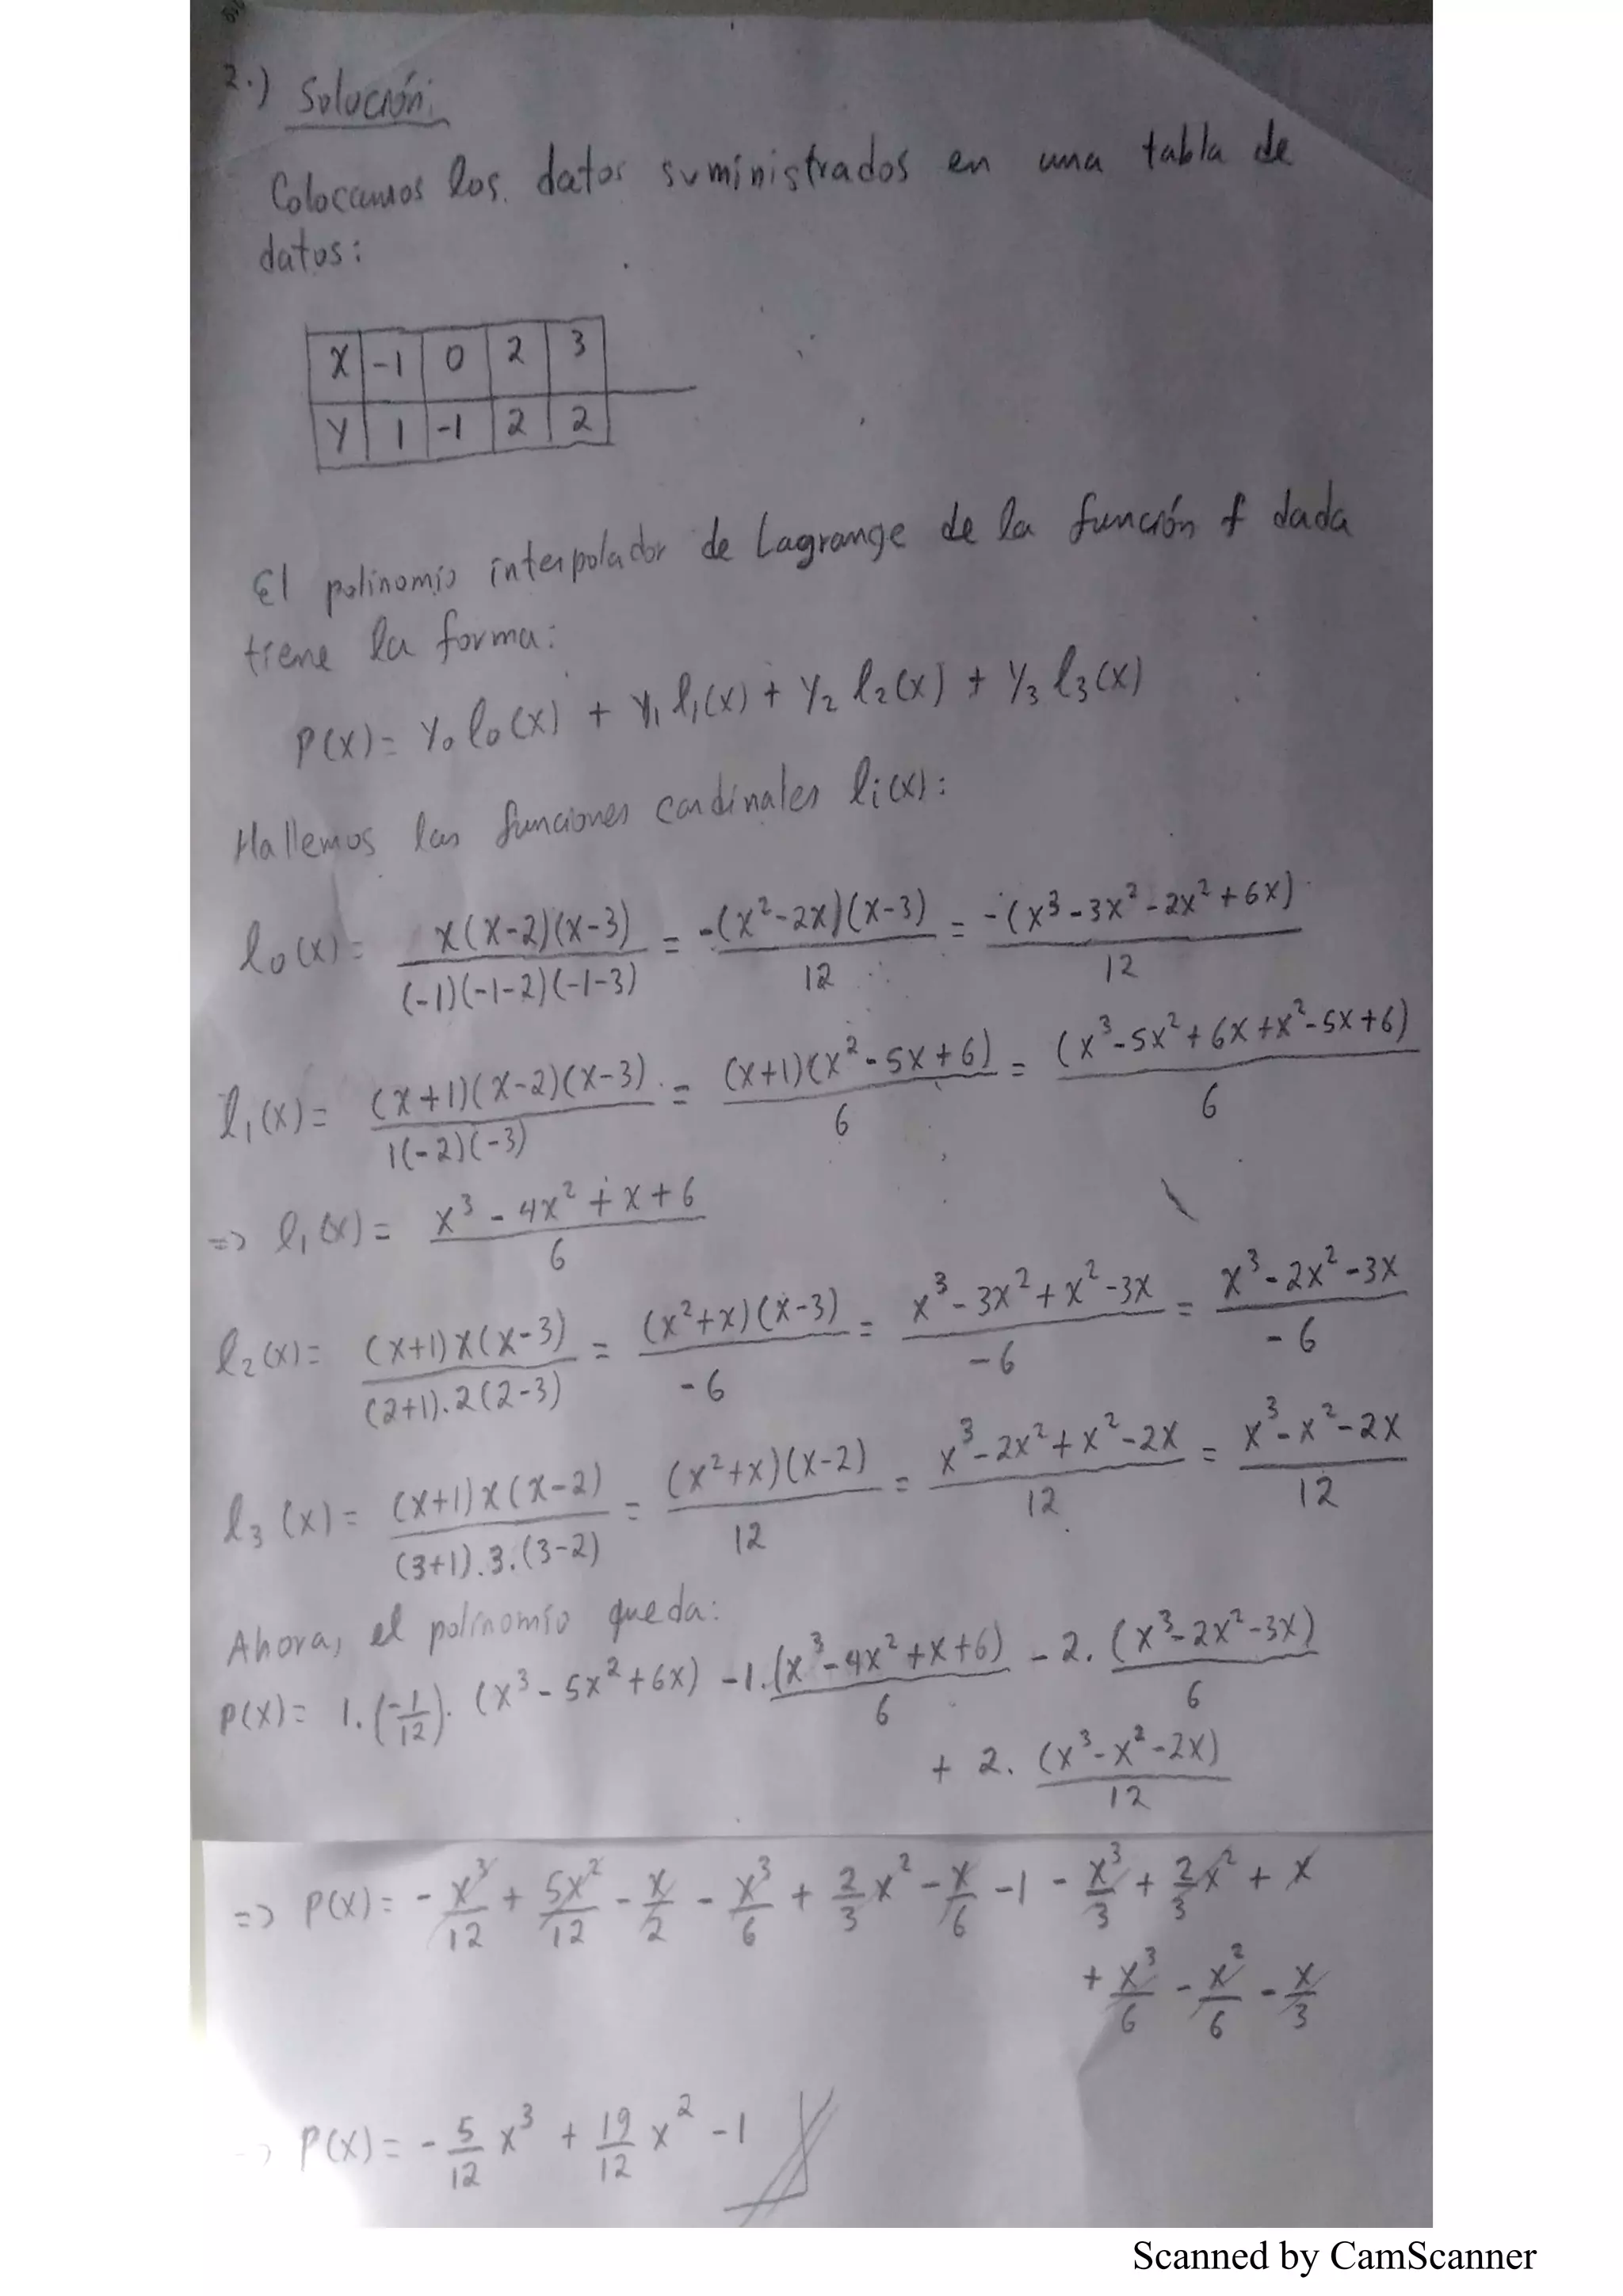 2.) Solución:
Colocamos los datos suministrados en una tabla de
datos:
X -1 0 2 3
Y 1 -1 2 2
El polinomio interpolador de Lagrange de la función f dada
tiene la forma:
P(X) = Y₀ l₀(X) + Y₁ l₁(X) + Y₂ l₂(X) + Y₃ l₃(X)
Hallemos las funciones cardinales li(X):
l₀(X) = X(X-2)(X-3) / (-1)(-1-2)(-1-3) = -(X²-2X)(X-3) / 12 = -(X³-3X²-2X²+6X) / 12
l₁(X) = (X+1)(X-2)(X-3) / 1(-2)(-3) = (X+1)(X²-5X+6) / 6 = (X³-5X²+6X+X²-5X+6) / 6
=> l₁(X) = X³-4X²+X+6 / 6
l₂(X) = (X+1)X(X-3) / (2+1).2(2-3) = (X²+X)(X-3) / -6 = X³-3X²+X²-3X / -6 = X³-2X²-3X / -6
l₃(X) = (X+1)X(X-2) / (3+1).3.(3-2) = (X²+X)(X-2) / 12 = X³-2X²+X²-2X / 12 = X³-X²-2X / 12
Ahora, el polinomio queda:
P(X) = 1.(-1/12).(X³-5X²+6X) -1.(X³-4X²+X+6) / 6 - 2.(X³-2X²-3X) / 6
+ 2.(X³-X²-2X) / 12
=> P(X) = -X³/12 + 5X²/12 - X/2 - X³/6 + 2/3 X² - X/6 - 1 - X³/3 + 2/3 X² + X
+ X³/6 - X²/6 - X/3
=> P(X) = -5/12 X³ + 19/12 X² - 1
Scanned by CamScanner